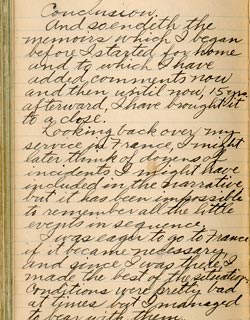 Conclusion
And so endeth the
memoirs which I began
before I started for home
and to which I have
added comments now
and then until now, 15 yrs.
afterward, I have brought it
to a close.
Looking back over my
service in France, I might
later think of dozens of
incidents I might have
included in the narrative
but it has been impossible
to remember all the little
events in sequence.
I was eager to go to France
if it became necessary
and since I was there I
made the best of the situation.
Conditions were pretty bad
at times but I managed
to bear with them.